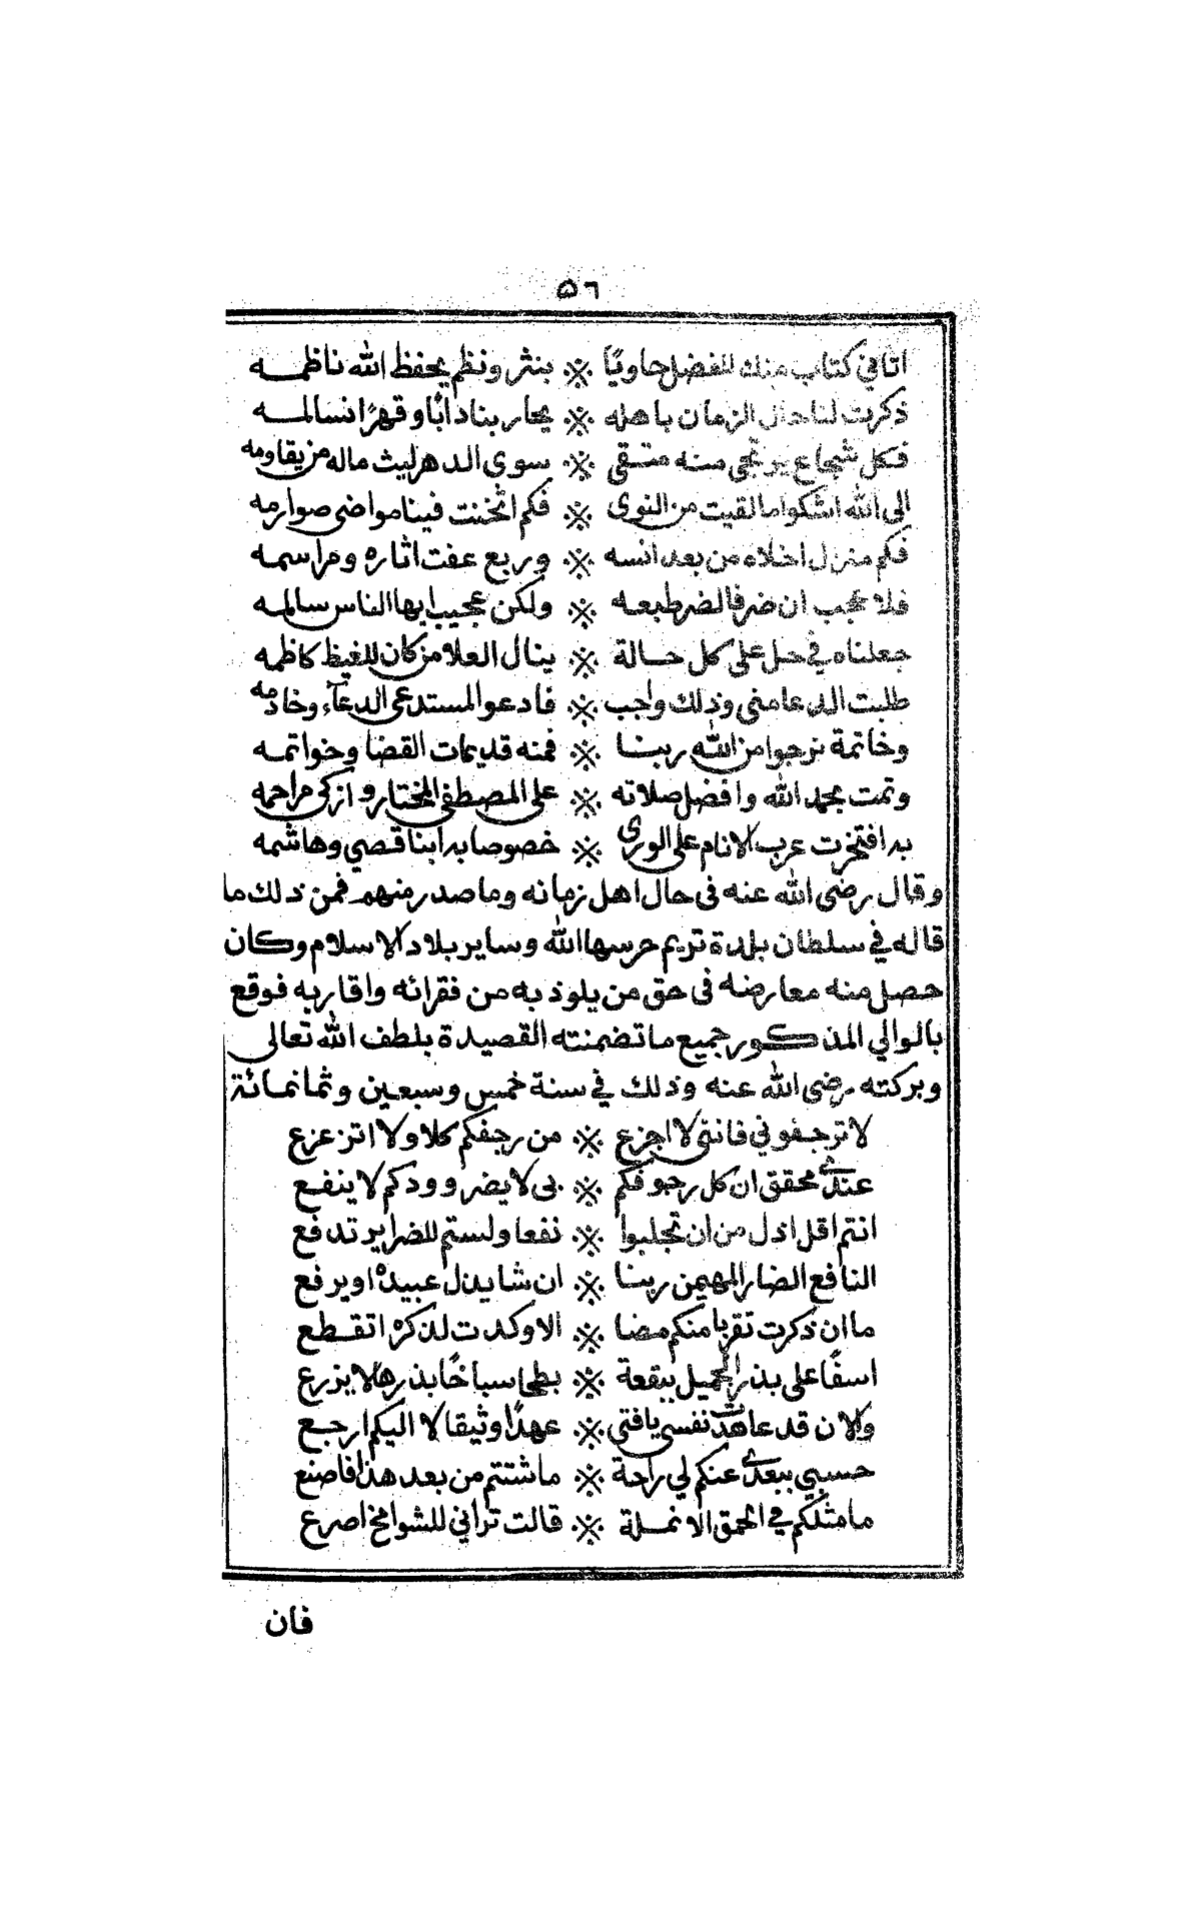 ٥٦
اتاني كتاب منك للفضل حاويًا ※ بنثر ونظم يحفظ الله ناظمـــه
ذكرت لنا حال الزمان باهله ※ يحاربنا دأبًا وقهرًا نسالمــه
فكل شجاع يرتجى منه متقي ※ سوى الدهر ليث ماله من يقاومه
الى الله اشكوا ما لقيت من النوى ※ فكم اثخنت فينا مواضى صوارمه
فكم منزل اخلاه من بعد انسه ※ وربع عفت اثاره ومراسمه
فلا عجب ان ضر فالضر طبعه ※ ولكن عجيب ايها الناس سالمه
جعلناه في حل على كل حالة ※ ينال العلا من كان للغيظ كاظمه
طلبت الدعا منى وذلك واجب ※ فادعو المستدعى الدعآء وخادمه
وخاتمة نرجوا من الله ربنا ※ فمنه قديمات القضا وخواتمه
وتمت بحمد الله وافضل صلاته ※ على المصطفى المختار وازكى مراحمه
به افتخرت عرب الانام على الورى ※ خصوصا به ابنا قصي وهاشمه
وقال رضى الله عنه فى حال اهل زمانه وما صدر منهم فمن ذلك ما
قاله في سلطان بلدة تريم حرسها الله وساير بلاد الاسلام وكان
حصل منه معارضه فى حق من يلوذ به من فقرائه واقاربه فوقع
بالوالي المذكور جميع ما تضمنته القصيدة بلطف الله تعالى
وبركته رضى الله عنه وذلك في سنة خمس وسبعين وثمانمائة
لا ترجفوني فانني لا اجزع ※ من رجفكم كلا ولا اتزعزع
عندى محقق ان كل رجوفكم ※ بى لا يضر وودكم لا ينفع
انتم اقل اذل من ان تجلبوا ※ نفعا ولستم للضراير تدفع
النافع الضار المهيمن ربنا ※ ان شا يذل عبيده او يرفع
ما ان ذكرت تقربا منكم مضا ※ الا وكدت لذكره اتقطع
اسفًا على بذر الجميل ببقعة ※ بطحا سباخًا بذرها لا يزرع
والان قد عاهدت نفسى يا فتى ※ عهدًا وثيقا لا اليكم ارجع
حسبي ببعدى عنكم لي راحة ※ ما شئتم من بعد هذا فاصنع
ما مثلكم في الحمق الا نملة ※ قالت تراني للشوامخ اصرع
فان